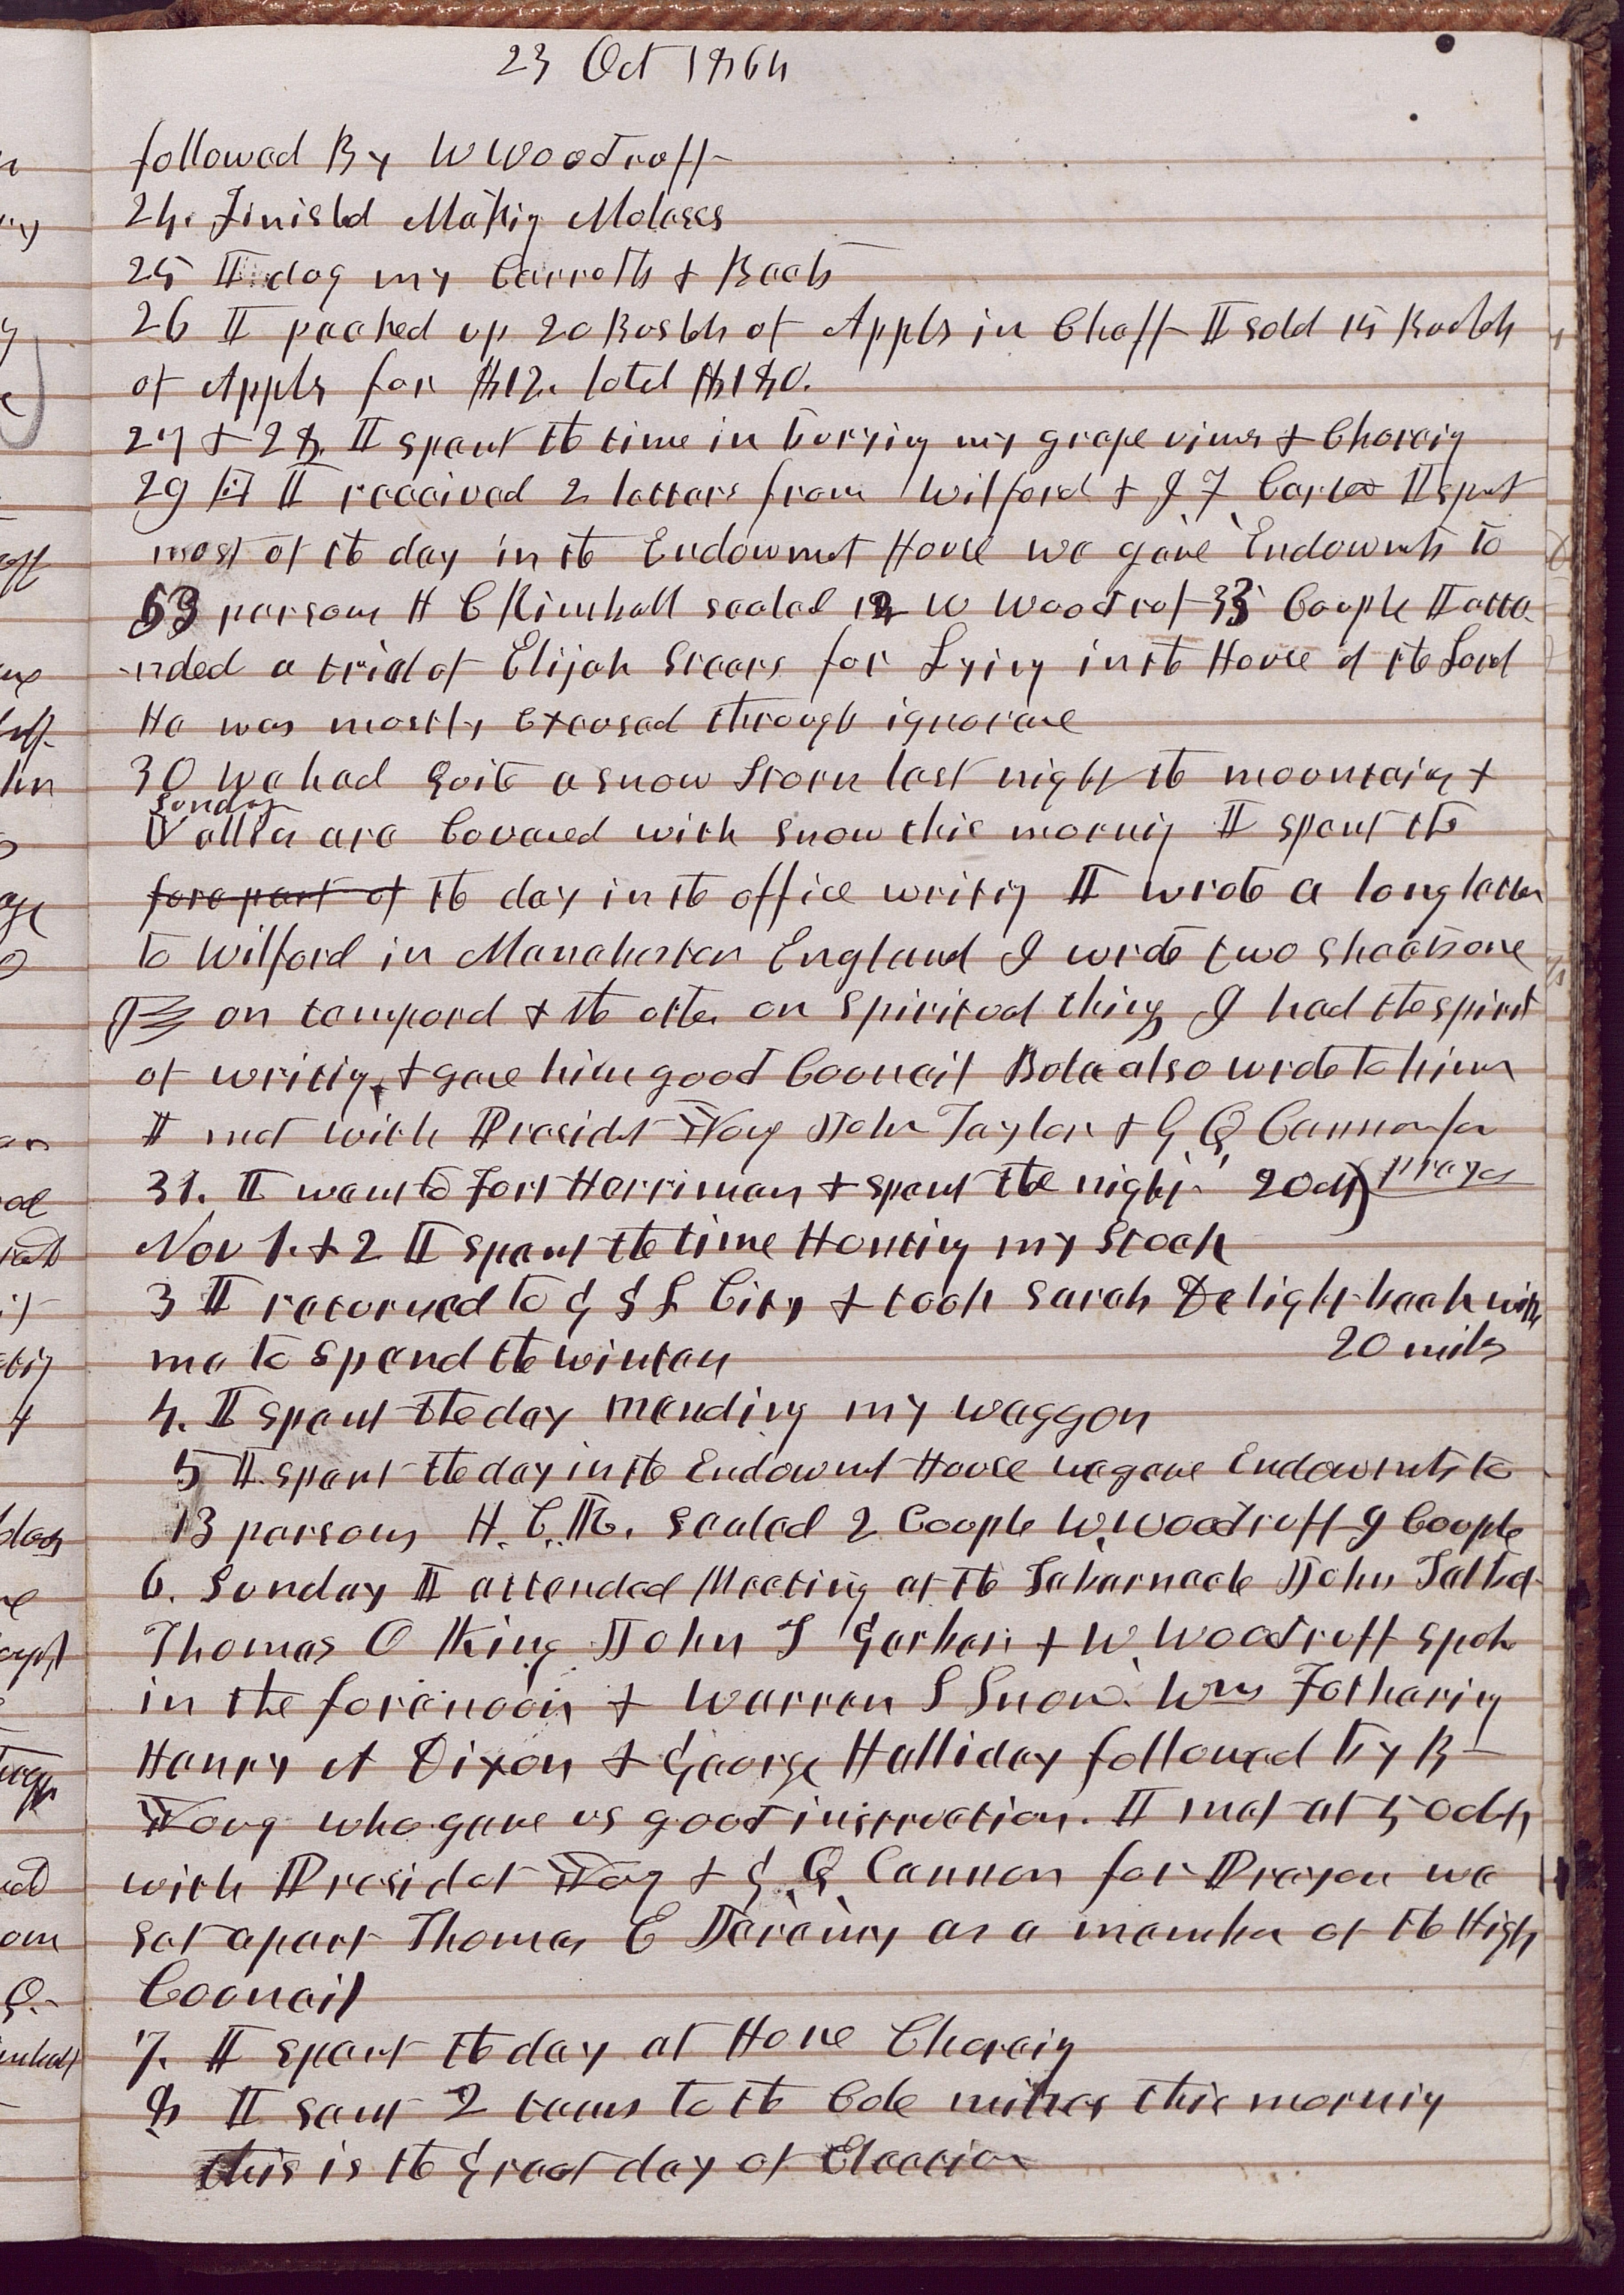 23 Oct 1864
followed By W Woodruff
24. Finishd Making Molasses
25 I dug my Carrotts & Beets
26 I packed up 20 Bushls of Appls in Chaff I sold 15 Bushls
of Appls for $12. total $180.
27 & 28. I spent the time in buryig my grape vines & Choreig
29 I received 2 letters from Wilford & J F Carter I spent
most of the day in the Endowmet House we gave Endowmts to
53 persons H C Kimball sealed 12 W Woodruf 33 Couple I atte-
-nded a trial of Elijah Sears for Lying in the House of the Lord
He was mostly Excused through ignorance
30 We had quite a snow Storm last night the mountains &
Sunday
Vallies are Covered with snow this mornig I spent the
fore part of the day in the office writig I wrote a long letter
to Wilford in Manchester England I wrote two sheets one
on temporal & the other on spiritual things I had the spirit
of writig & gave him good Council Bulah also wrote to him
I met with Presidet Young John Taylor & G Q Cannon for
31. I went to Fort Herriman & spent the night 20 m prayer
Nov 1. & 2 I spent the time Hunting my Stock
3 I returned to G S L City & took Sarah Delight back with
me to spend the winter 20 mils
4. I spent the day mending my waggon
5 I spent the day in the Endowmt House we gave Endowmts to
13 persons H. C. K. sealed 2 Couple W. Woodruff 9 Couple
6. Sunday I attended Meeting at the Tabernacle John Talbot
Thomas O King John T Gerber & W. Woodruff spoke
in the forenoon & Warren S Snow. Wm Fotherig
Henry A Dixon & George Halliday followed by B
Young who gave us good instruction. I met at 5 oclk
with Presidet Young & G. Q. Cannon for Prayer we
set apart Thomas E Jeremy as a member of the High
Council
7. I spent the day at Home Choreig
8 I sent 2 teams to the Cole mines this mornig
this is the Great day of Election